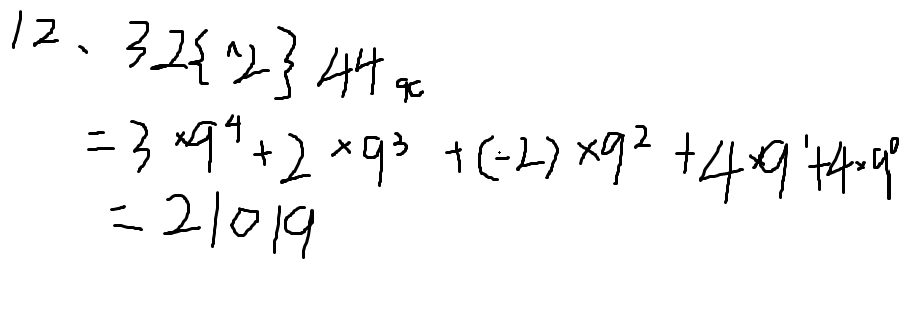 12、32{^2}44₉c
=3×9⁴+2×9³+(-2)×9²+4×9¹+4×9⁰
=21019